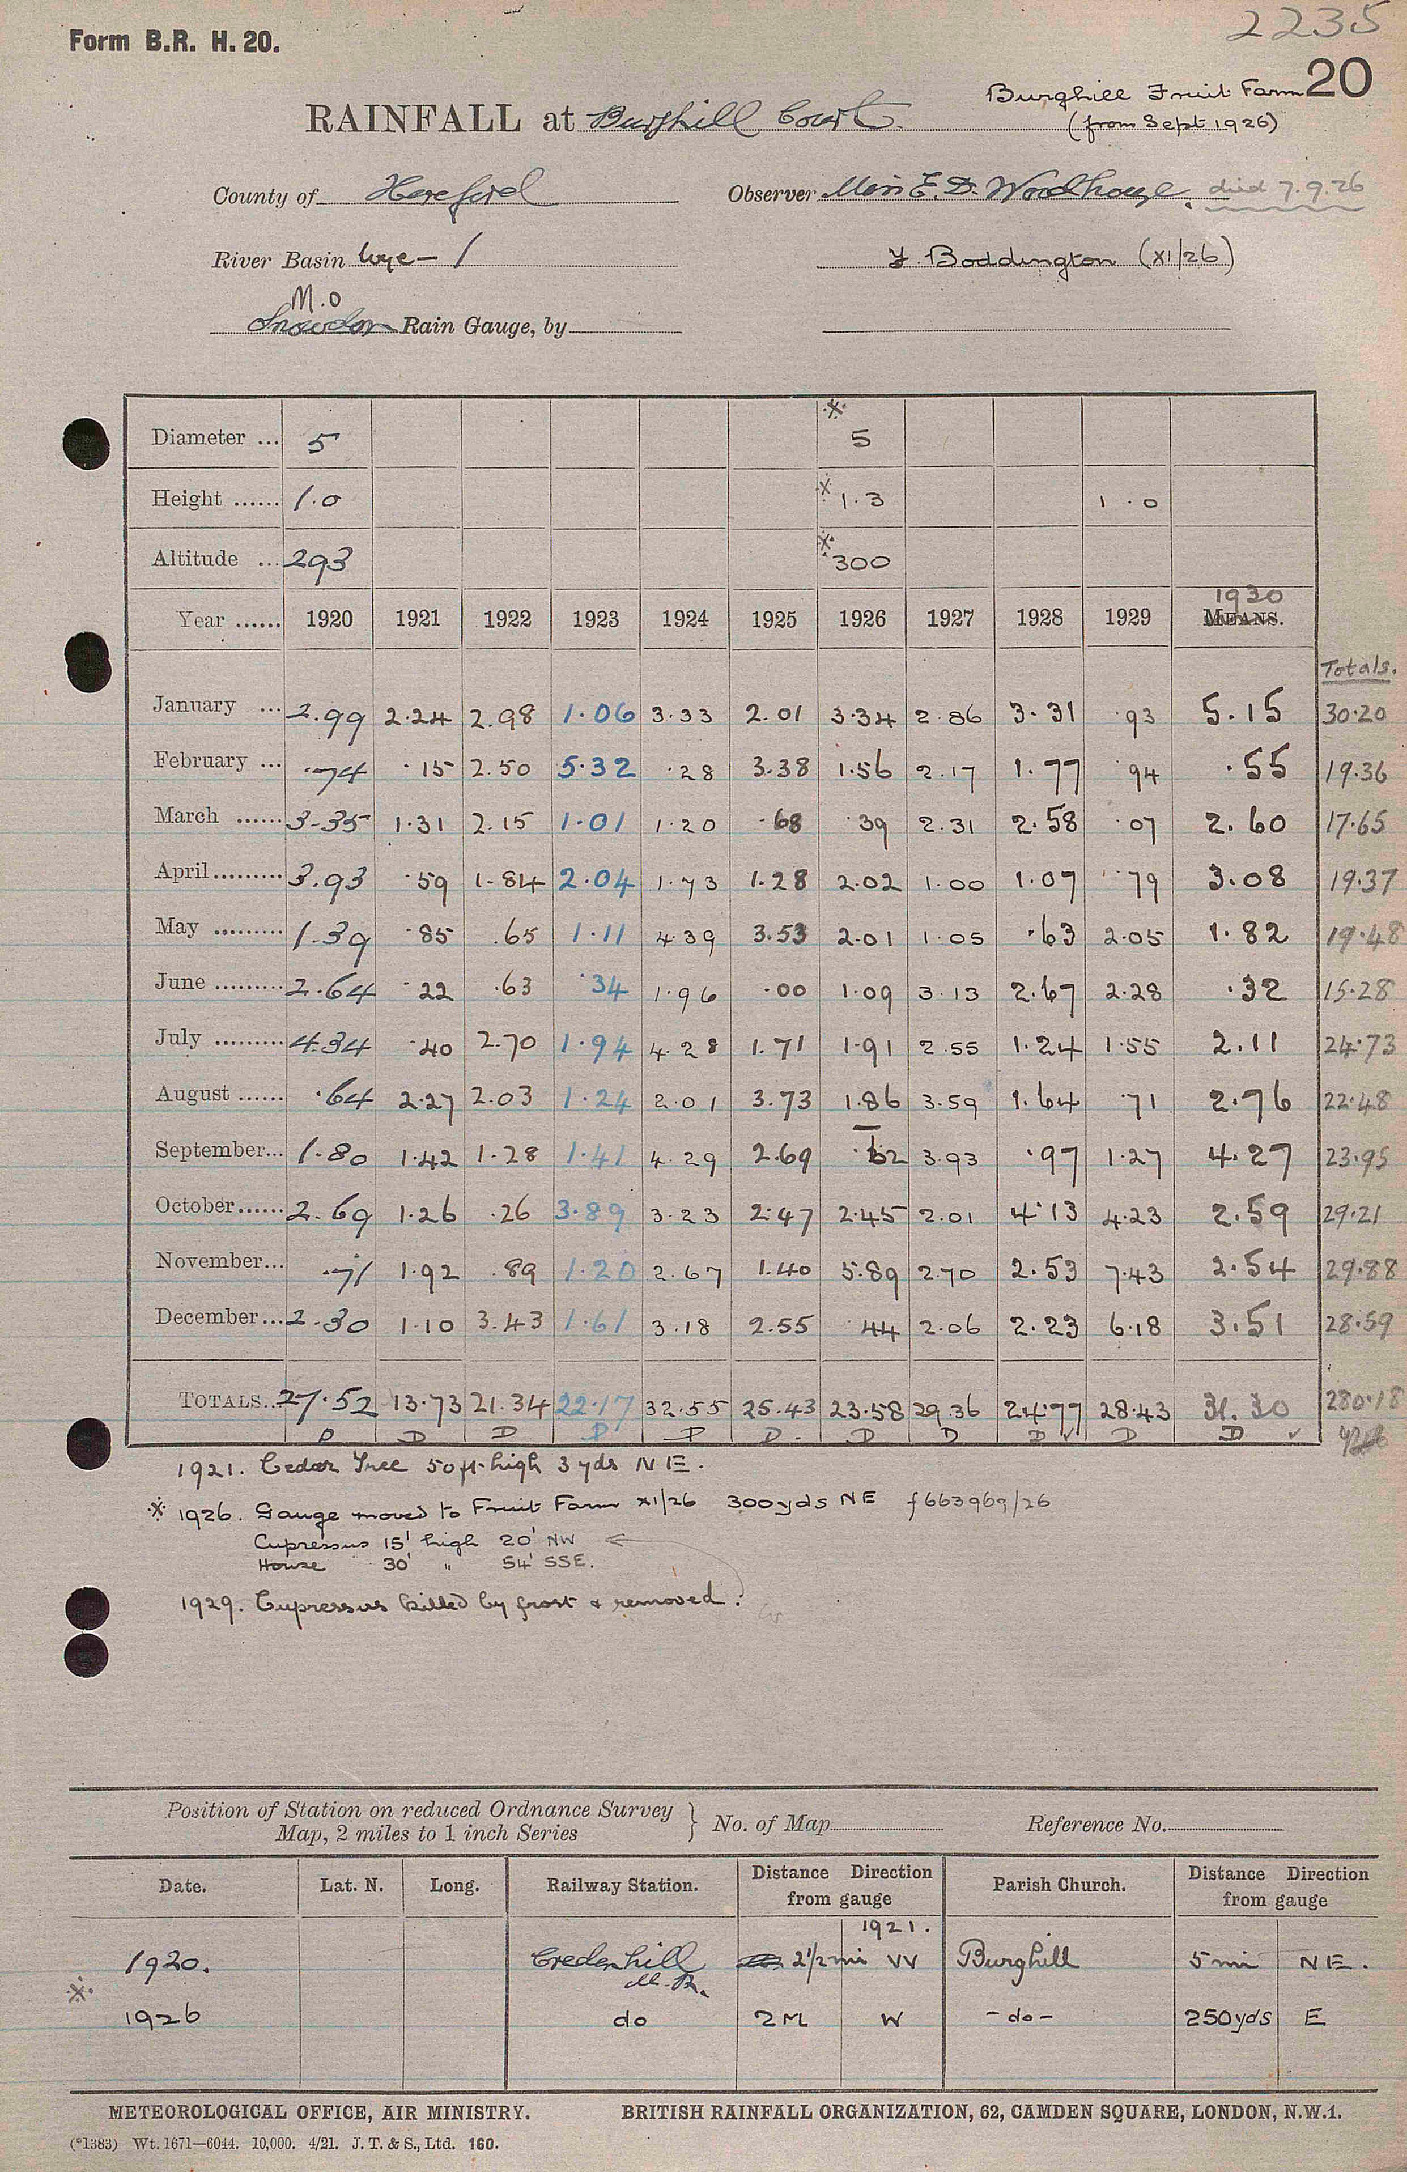 2235
Form B.R. H. 20.
20
Burghill Fruit Farm
RAINFALL at Burghill Court (from Sept 1926)
County of Hereford Observer Miss E. D. Woodhouse. died 7.9.26
River Basin Wye - 1 F Boddington (XI/26)
M.O
Snowdon Rain Gauge, by
Diameter ... 5 * 5
Height ...... 1.0 * 1.3 1.0
Altitude ... 293 * 300
1930
Year ...... 1920 1921 1922 1923 1924 1925 1926 1927 1928 1929 MEANS.
Totals.
January ... 2.99 2.24 2.98 1.06 3.33 2.01 3.34 2.86 3.31 .93 5.15 30.20
February ... .74 .15 2.50 5.32 .28 3.38 1.56 2.17 1.77 .94 .55 19.36
March ...... 3.35 1.31 2.15 1.01 1.20 .68 .39 2.31 2.58 .07 2.60 17.65
April ......... 3.93 .59 1.84 2.04 1.73 1.28 2.02 1.00 1.07 .79 3.08 19.37
May ......... 1.39 .85 .65 1.11 4.39 3.53 2.01 1.05 .63 2.05 1.82 19.48
June ......... 2.64 .22 .63 .34 1.96 .00 1.09 3.13 2.67 2.28 .32 15.28
July ......... 4.34 .40 2.70 1.94 4.28 1.71 1.91 2.55 1.24 1.55 2.11 24.73
August ...... .64 2.27 2.03 1.24 2.01 3.73 1.86 3.59 1.64 .71 2.76 22.48
September... 1.80 1.42 1.28 1.41 4.29 2.69 3.93 .97 1.27 4.27 23.95
October...... 2.69 1.26 .26 3.89 3.23 2.47 2.45 2.01 4.13 4.23 2.59 29.21
November... .71 1.92 .89 1.20 2.67 1.40 5.89 2.70 2.53 7.43 2.54 29.88
December... 2.30 1.10 3.43 1.61 3.18 2.55 .44 2.06 2.23 6.18 3.51 28.59
TOTALS.. 27.52 13.73 21.34 22.17 32.55 25.43 23.58 29.36 24.77 28.43 31.30 280.18
D D D D D D D D D D D
1921. Cedar Tree 50ft. high 3 yds NE.
* 1926. Gauge moved to Fruit Farm XI/26 300yds NE f663969/26
Cupressus 15' high 20' NW
House 30' " 54' SSE.
1929. Cupressus killed by frost & removed.
Position of Station on reduced Ordnance Survey
Map, 2 miles to 1 inch Series } No. of Map Reference No.
Date. Lat. N. Long. Railway Station. Distance Direction from gauge Parish Church. Distance Direction from gauge
1921.
1920. Credenhill 2½mi W Burghill 5 mi NE.
M.R.
* 1926 do 2M W - do - 250yds E
METEOROLOGICAL OFFICE, AIR MINISTRY. BRITISH RAINFALL ORGANIZATION, 62, CAMDEN SQUARE, LONDON, N.W.1.
(*1383) Wt. 1671—6044. 10,000. 4/21. J. T. & S., Ltd. 160.